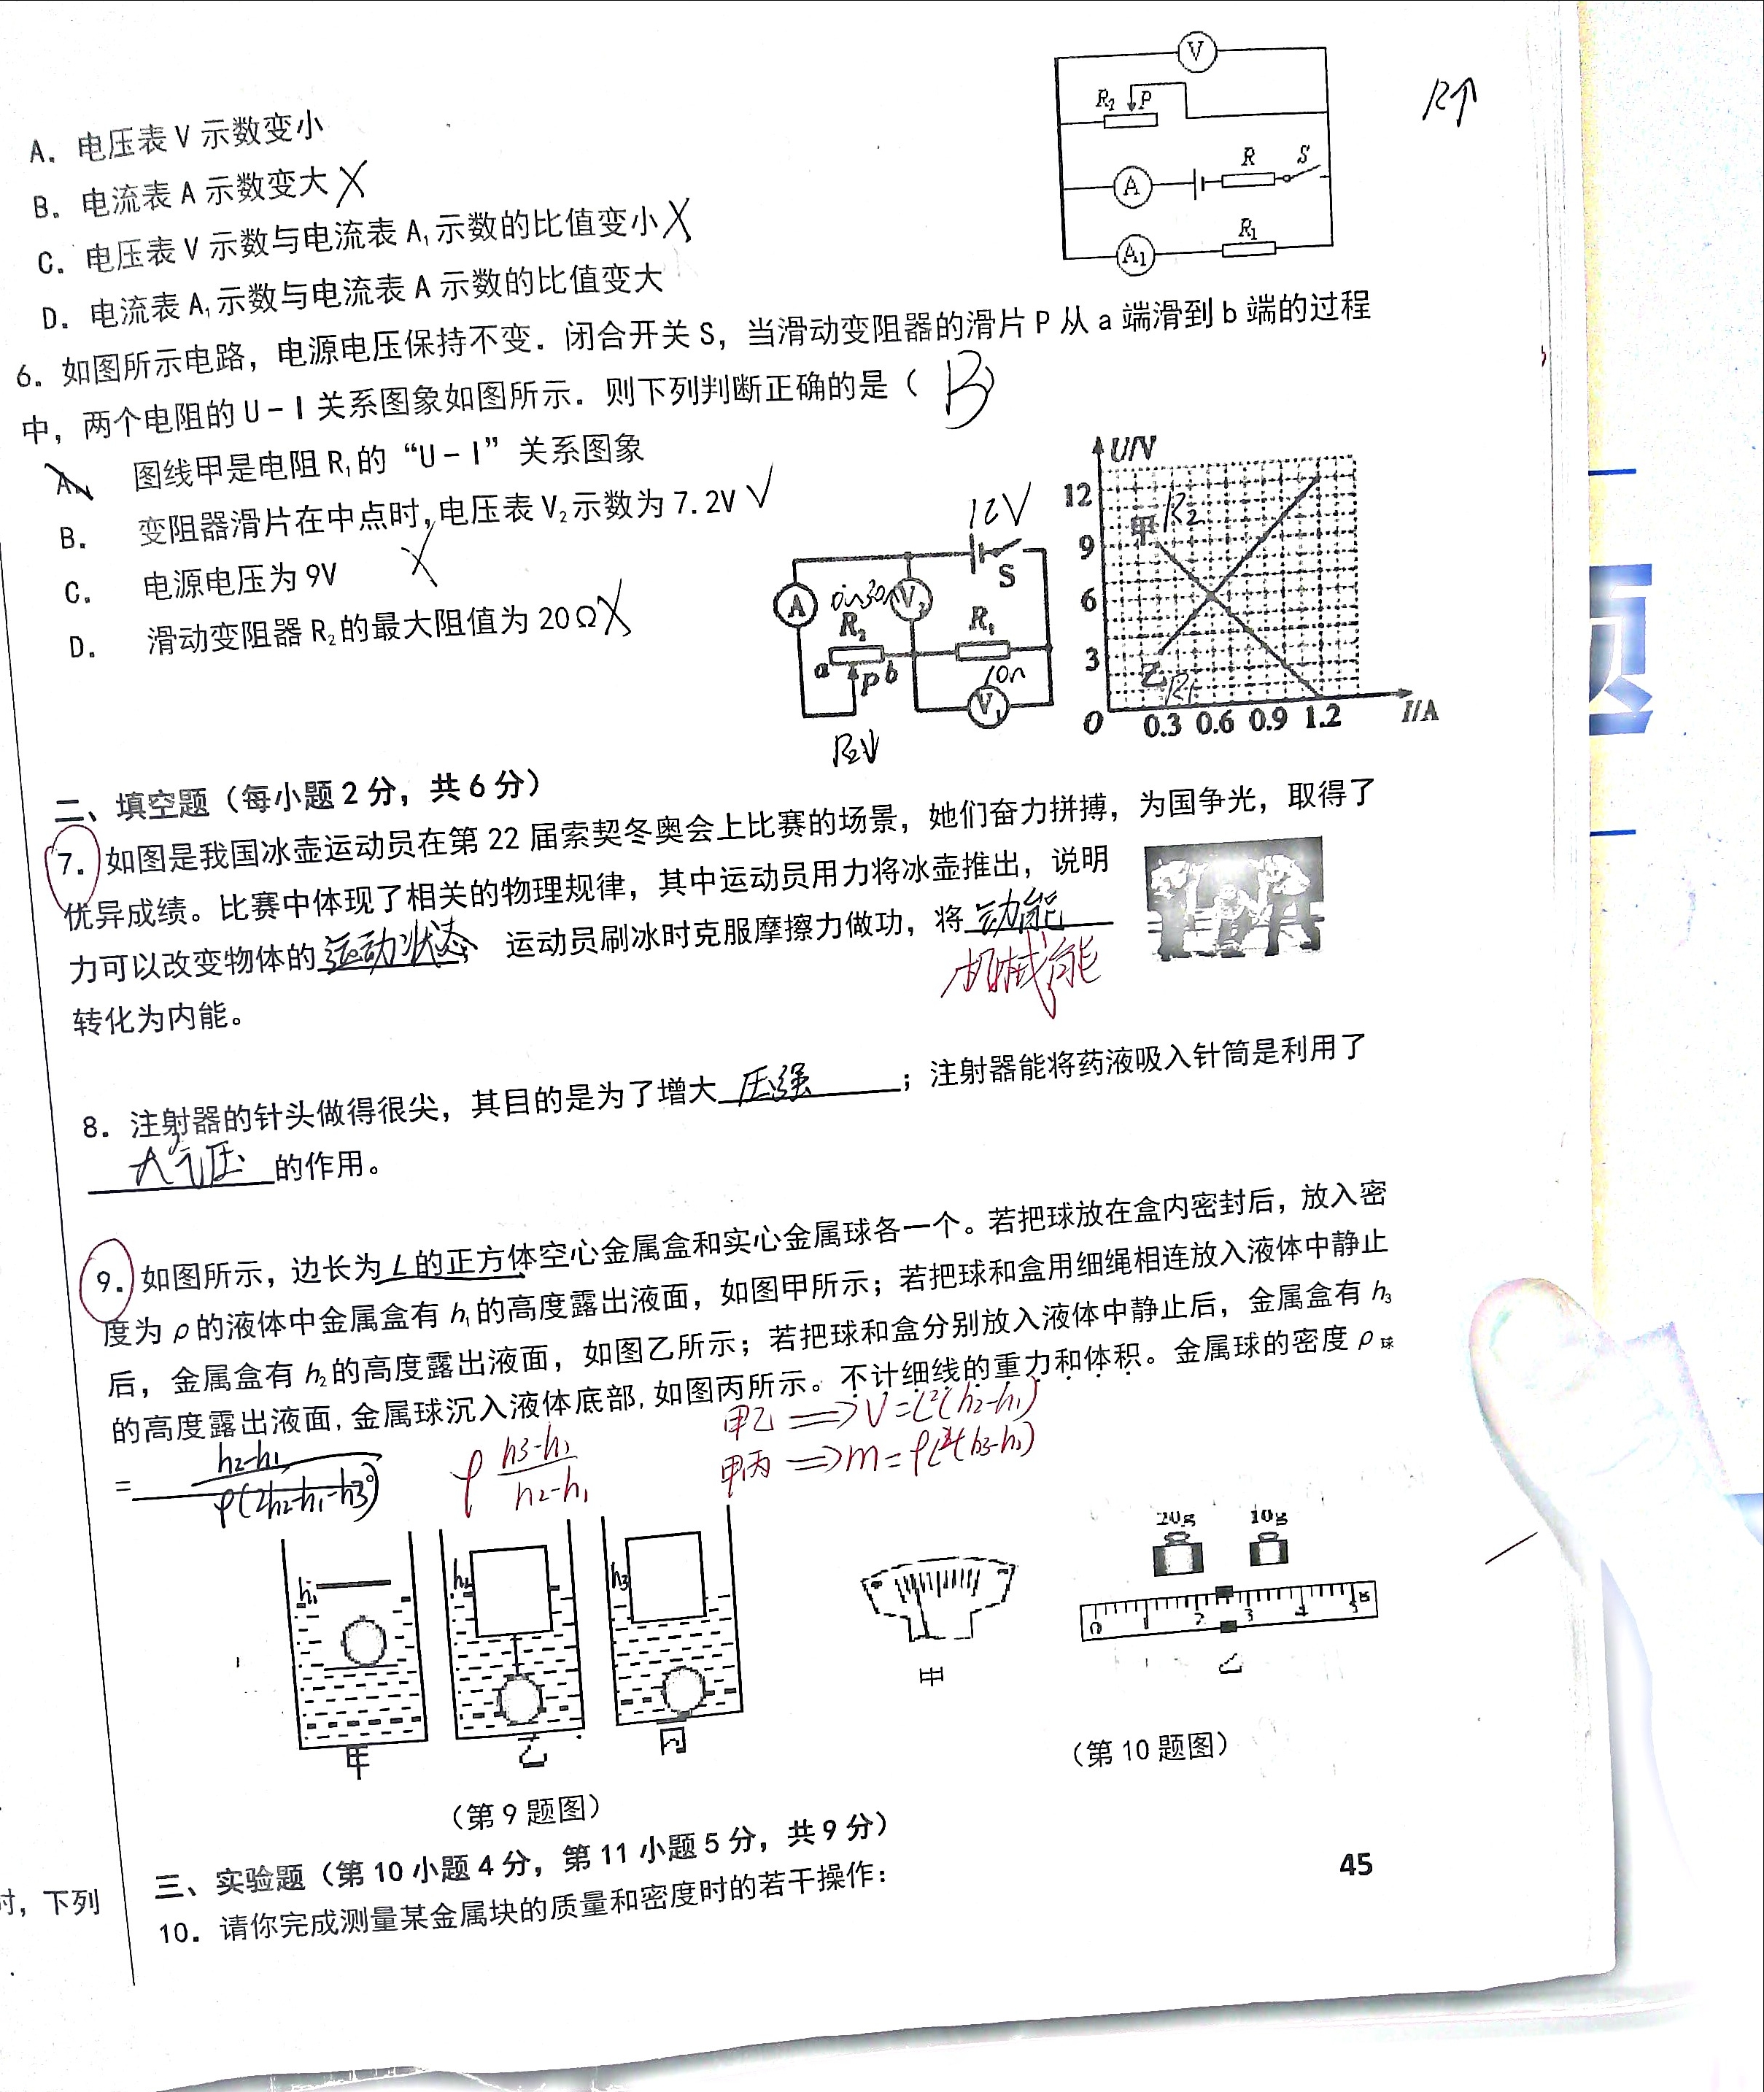 A. 电压表 V 示数变小
B. 电流表 A 示数变大 X
C. 电压表 V 示数与电流表 A₁ 示数的比值变小 X
D. 电流表 A₁ 示数与电流表 A 示数的比值变大
V
R₂ P
A R S
A₁ R₁
R↑
6. 如图所示电路，电源电压保持不变．闭合开关 S，当滑动变阻器的滑片 P 从 a 端滑到 b 端的过程
中，两个电阻的 U－I 关系图象如图所示．则下列判断正确的是（ B ）
A. 图线甲是电阻 R₁ 的“U－I”关系图象
B. 变阻器滑片在中点时，电压表 V₂ 示数为 7.2V √
C. 电源电压为 9V X
D. 滑动变阻器 R₂ 的最大阻值为 20Ω X
12V
S
A V₂
R₂ R₁
a P b 10Ω
V₁
R₂↓
U/V
12
甲 R₂
9
6
3
乙 R₁
0 0.3 0.6 0.9 1.2 I/A
二、填空题（每小题 2 分，共 6 分）
7. 如图是我国冰壶运动员在第 22 届索契冬奥会上比赛的场景，她们奋力拼搏，为国争光，取得了
优异成绩。比赛中体现了相关的物理规律，其中运动员用力将冰壶推出，说明
力可以改变物体的运动状态；运动员刷冰时克服摩擦力做功，将动能
机械能
转化为内能。
8. 注射器的针头做得很尖，其目的是为了增大压强；注射器能将药液吸入针筒是利用了
大气压的作用。
9. 如图所示，边长为 L 的正方体空心金属盒和实心金属球各一个。若把球放在盒内密封后，放入密
度为 ρ 的液体中金属盒有 h₁ 的高度露出液面，如图甲所示；若把球和盒用细绳相连放入液体中静止
后，金属盒有 h₂ 的高度露出液面，如图乙所示；若把球和盒分别放入液体中静止后，金属盒有 h₃
的高度露出液面，金属球沉入液体底部，如图丙所示。不计细线的重力和体积。金属球的密度 ρ球
甲乙 ⟹ V=L²(h₂-h₁)
甲丙 ⟹ m=ρL²(h₃-h₁)
= (h₂-h₁)/ρ(2h₂-h₁-h₃)。
ρ (h₃-h₁)/(h₂-h₁)
h₁ h₂ h₃
甲 乙 丙
（第 9 题图）
20g 10g
0 1 2 3 4 5g
甲 乙
（第 10 题图）
三、实验题（第 10 小题 4 分，第 11 小题 5 分，共 9 分）
10. 请你完成测量某金属块的质量和密度时的若干操作：
45
时，下列